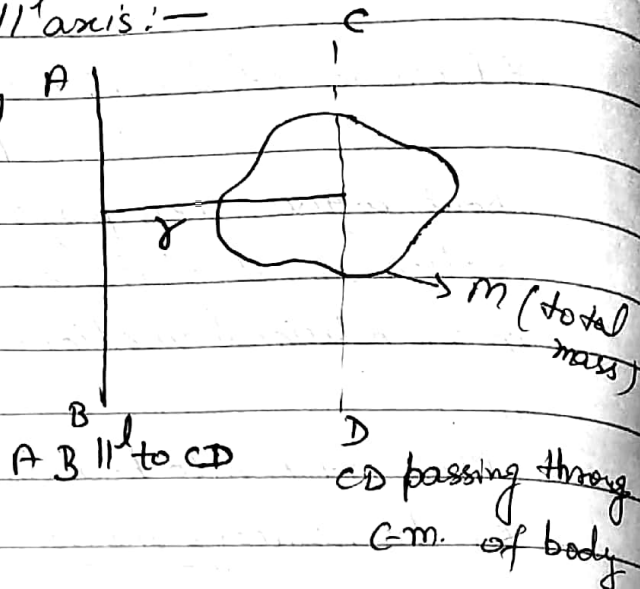 11ˡ axis :—
C
A
r
M (total
mass)
B
D
AB 11ˡ to CD
CD passing throug
C-m. of body